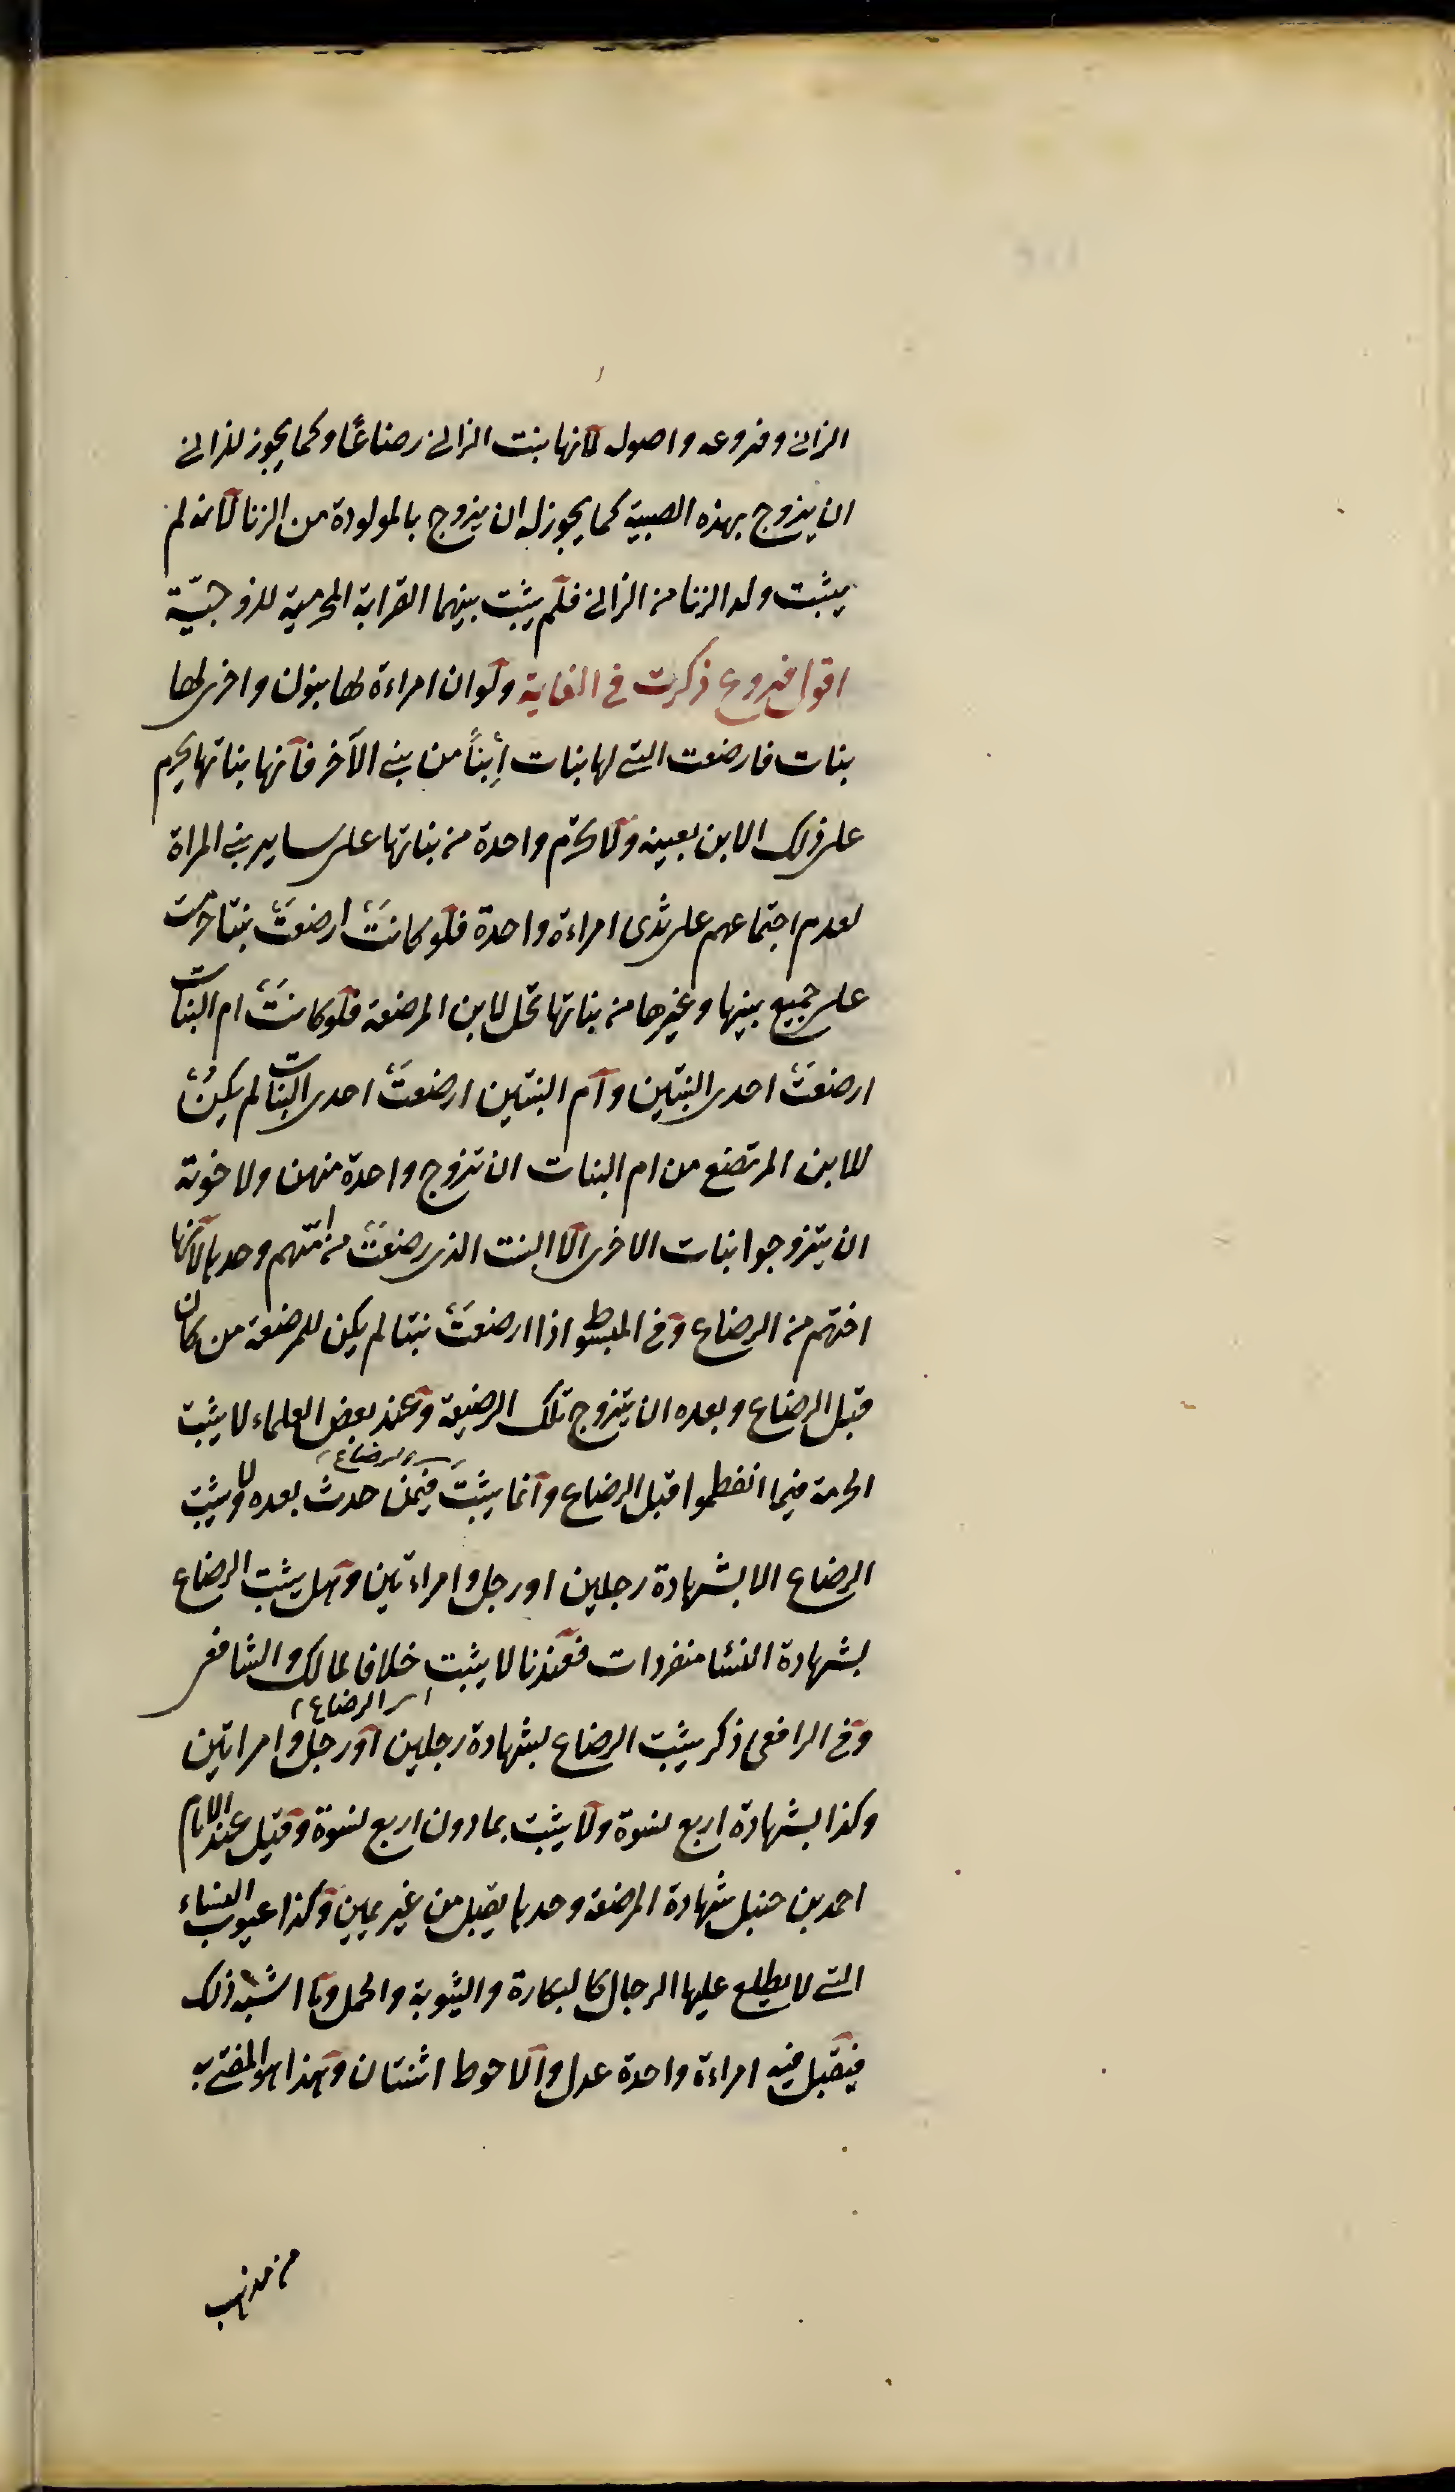 الزانى وفروعه واصوله لانها بنت الزانى رضاعًا وكما يجوز للزانى
ان يزوج بهذه الصبية كما يجوز له ان يزوج بالمولودة من الزنا لانه لم
يثبت ولد الزنا من الزانى فلم يثبت بينهما القرابة المحرمية للزوجيّة
اقول فروع ذكرت في الغاية ولو ان امراءة لها بنون واخرى لها
بنات فارضعت التي لها بنات اِبناً من بني الآخر فانها بناتها يحرم
على ذلك الابن بعينه ولا يحرم واحدة من بناتها على ساير بني المراة
لعدم اجتماعهم على ثدى امراءة واحدة فلو كانت ارضعت بنتا حرمت
على جميع بنيها وغيرها من بناتها تحل لابن المرضعة فلو كانت ام البنات
ارضعت احدى البنتين وام البنتين ارضعت احدى البنات لم يكن
للابن المرتضع من ام البنات ان تزوج واحدة منهن ولاخوته
ان يتزوجوا بنات الاخرى الا البنت الذى رضعت من امّهم وحدها لانها
اختهم من الرضاع وفى المبسوط اذا ارضعت بنتا لم يكن للمرضعة من كان
قبل الرضاع وبعده ان يتزوج تلك الرضيعة وعند بعض العلماء لا يثبت
الحرمة فيما انفطموا قبل الرضاع وانما يثبت فيمن حدث بعده ولا يثبت
الرضاع الا بشهادة رجلين او رجل وامراءتين وهل يثبت الرضاع
بشهادة النساء منفردات فعندنا لا يثبت خلافا لمالك والشافعى
اى الرضاع
وفى الرافعى ذكر يثبت الرضاع بشهادة رجلين او رجل وامراتين
وكذا بشهادة اربع نسوة ولا يثبت بما دون اربع نسوة وقيل عند الامام
احمد بن حنبل شهادة المرضعة وحدها يقبل من غير يمين وكذا عيوب النساء
التي لا يطلع عليها الرجال كالبكارة والثيوبة والحمل وما اشبه ذلك
فيقبل فيه امراءة واحدة عدل والاحوط اثنتان وهذا هو المفتى به
من مذهب